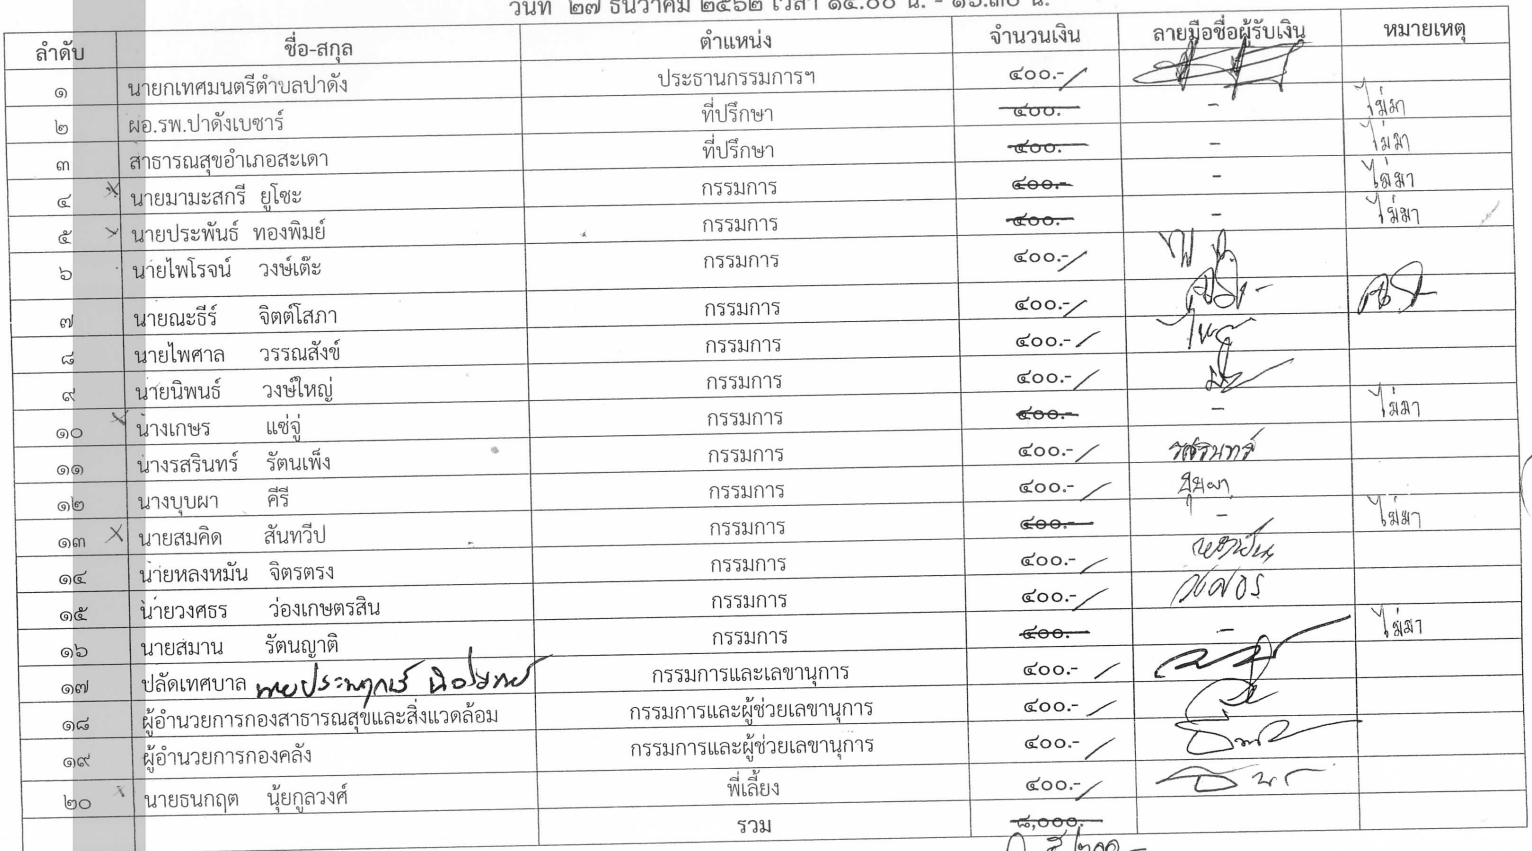 วันที่ ๒๗ ธันวาคม ๒๕๖๒ เวลา ๑๔.๐๐ น. - ๑๖.๓๐ น.
ลำดับ ชื่อ-สกุล ตำแหน่ง จำนวนเงิน ลายมือชื่อผู้รับเงิน หมายเหตุ
๑ นายกเทศมนตรีตำบลปาดัง ประธานกรรมการฯ ๔๐๐.-
๒ ผอ.รพ.ปาดังเบซาร์ ที่ปรึกษา ๔๐๐.- - ไม่มา
๓ สาธารณสุขอำเภอสะเดา ที่ปรึกษา ๔๐๐.- - ไม่มา
๔ นายมามะสกรี ยูโซะ กรรมการ ๔๐๐.- - ไม่มา
๕ นายประพันธ์ ทองพิมย์ กรรมการ ๔๐๐.- - ไม่มา
๖ นายไพโรจน์ วงษ์เต๊ะ กรรมการ ๔๐๐.-
๗ นายณะธีร์ จิตต์โสภา กรรมการ ๔๐๐.-
๘ นายไพศาล วรรณสังข์ กรรมการ ๔๐๐.-
๙ นายนิพนธ์ วงษ์ใหญ่ กรรมการ ๔๐๐.-
๑๐ นางเกษร แซ่จู่ กรรมการ ๔๐๐.- - ไม่มา
๑๑ นางรสรินทร์ รัตนเพ็ง กรรมการ ๔๐๐.- รสรินทร์
๑๒ นางบุบผา คีรี กรรมการ ๔๐๐.- บุบผา
๑๓ นายสมคิด สันทวีป กรรมการ ๔๐๐.- - ไม่มา
๑๔ นายหลงหมัน จิตรตรง กรรมการ ๔๐๐.-
๑๕ นายวงศธร ว่องเกษตรสิน กรรมการ ๔๐๐.- วงศธร
๑๖ นายสมาน รัตนญาติ กรรมการ ๔๐๐.- - ไม่มา
๑๗ ปลัดเทศบาล กรรมการและเลขานุการ ๔๐๐.-
๑๘ ผู้อำนวยการกองสาธารณสุขและสิ่งแวดล้อม กรรมการและผู้ช่วยเลขานุการ ๔๐๐.-
๑๙ ผู้อำนวยการกองคลัง กรรมการและผู้ช่วยเลขานุการ ๔๐๐.-
๒๐ นายธนกฤต นุ้ยกูลวงศ์ พี่เลี้ยง ๔๐๐.-
รวม ๘,๐๐๐.-
๕,๒๐๐.-